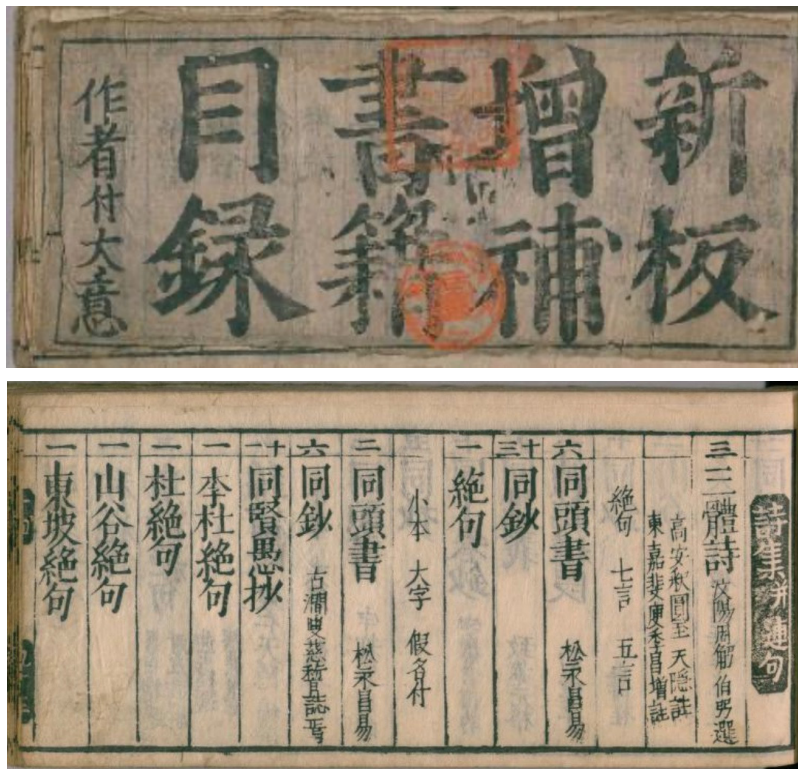 新板
增補
書籍
目録
作者付大意
詩集并連句
三 三體詩 汶陽周弼伯弜選
高安釈圓至天隱註
東嘉裴庾季昌增註
絶句 七言 五言
六 同頭書 松永昌易
十三 同鈔
一 絶句
小本 大字 假名付
二 同頭書 松永昌易
六 同鈔
十一 同賢愚抄
一 李杜絶句
二 杜絶句
一 山谷絶句
一 東坡絶句